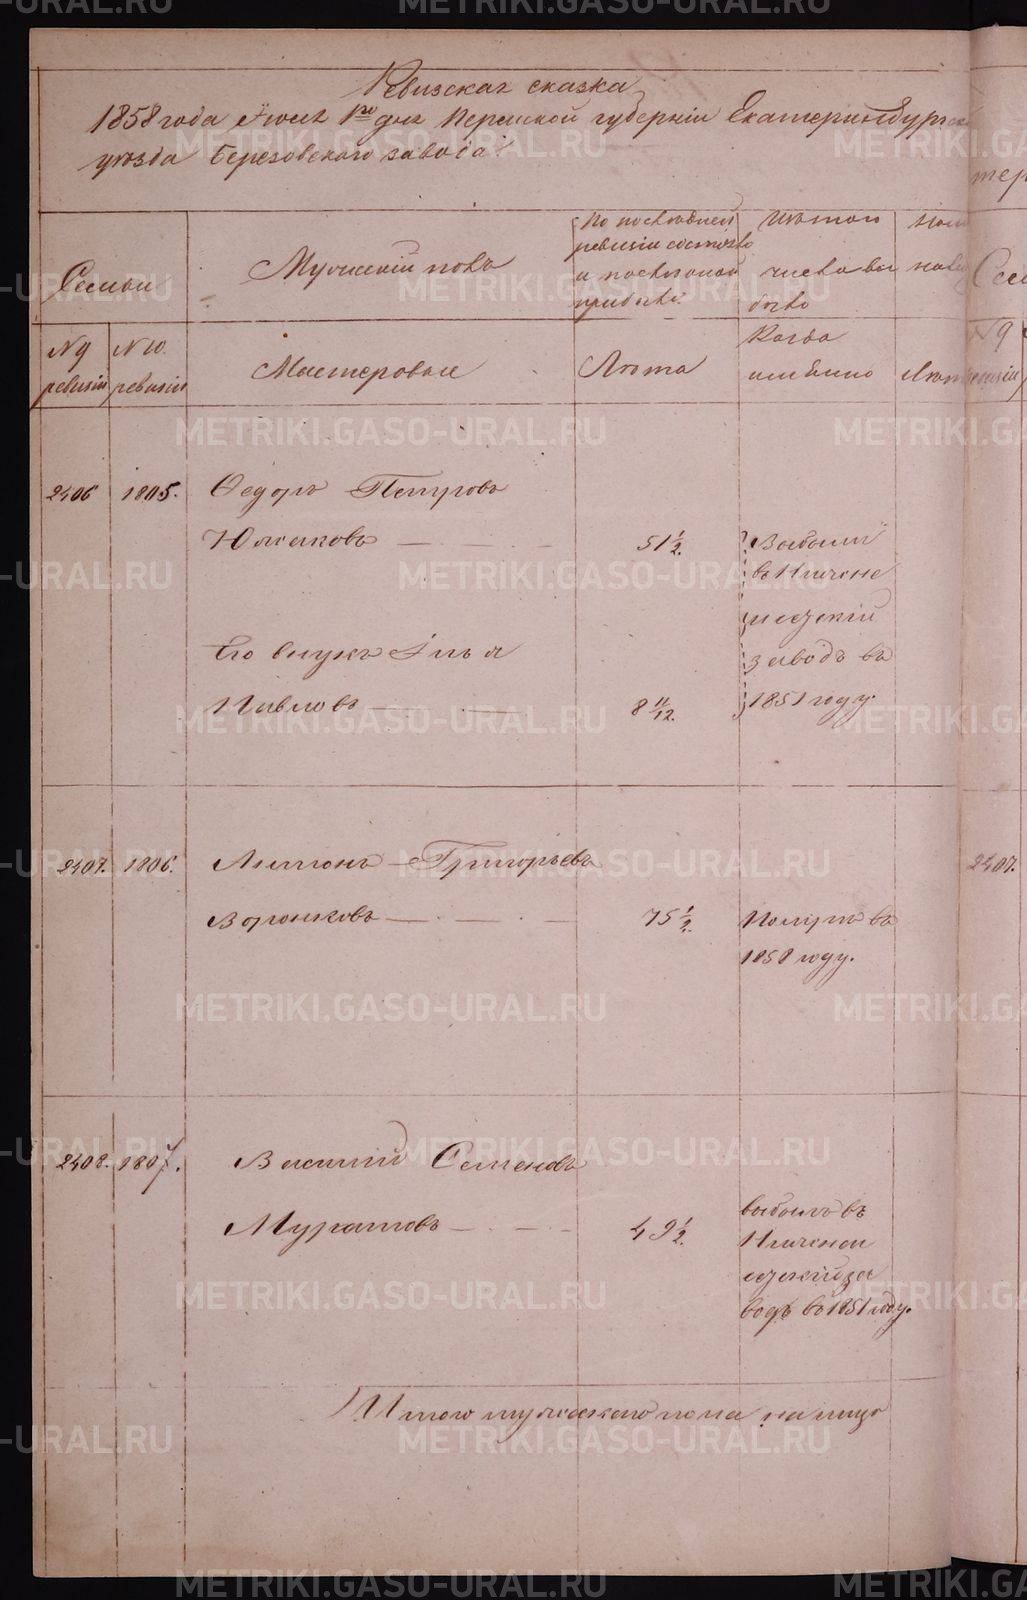 Ревизская сказка
1858 года Іюня 1го дня Пермской губерніи Екатеринбургска
уезда Березовскаго завода
Семьи
Мужескій полъ
По последней
ревизіи состояло
и после оной
прибыло
Изъ того
числа вы
было
№ 9
ревизіи
№ 10
ревизіи
Мастеровые
Лета
Когда
именно
Лета
2406
1805.
Ѳедоръ Петровъ
Южаковъ
51 1/2.
Выбыли
въ Нижне
исетскій
заводъ въ
1851 году.
Его внукъ Илья
Павловъ
8 11/12.
2407.
1806.
Антонъ Григорьевъ
Воронковъ
75 1/2.
Померъ въ
1858 году.
2407.
2408.
1807.
Василій Семеновъ
Муратовъ
49 1/2.
выбылъ въ
Нижнеи
сетскій за
водъ въ 1851 году.
Итого мужескаго пола на лицо
METRIKI.GASO-URAL.RU